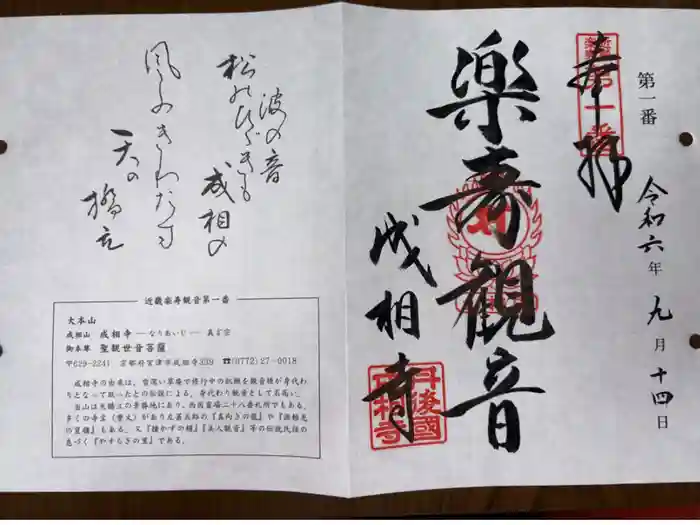 奉拝
第一番
令和六年九月十四日
楽寿観音
成相寺
丹後國
成相寺
波の音
松のひゞきも
成相の
風ふきわたす
天の
橋立
近畿楽寿観音第一番
大本山
成相山 成相寺―なりあいじ― 真言宗
御本尊 聖観世音菩薩
〒629-2241 京都府宮津市成相寺339 ☎(0772)27-0018
成相寺の由来は、雪深い草庵で修行中の仏師を観音様が身代わ
りとなって救ったとの伝説による。身代わり観音として名高い。
当山は天橋立の景勝地にあり、西国霊場二十八番札所でもある。
多くの寺宝(重文)があり左甚五郎の『真向きの龍』や『
』もある。又『撞かずの鐘』『美人観音』等の伝説民話の
息づく『やすらぎの里』である。